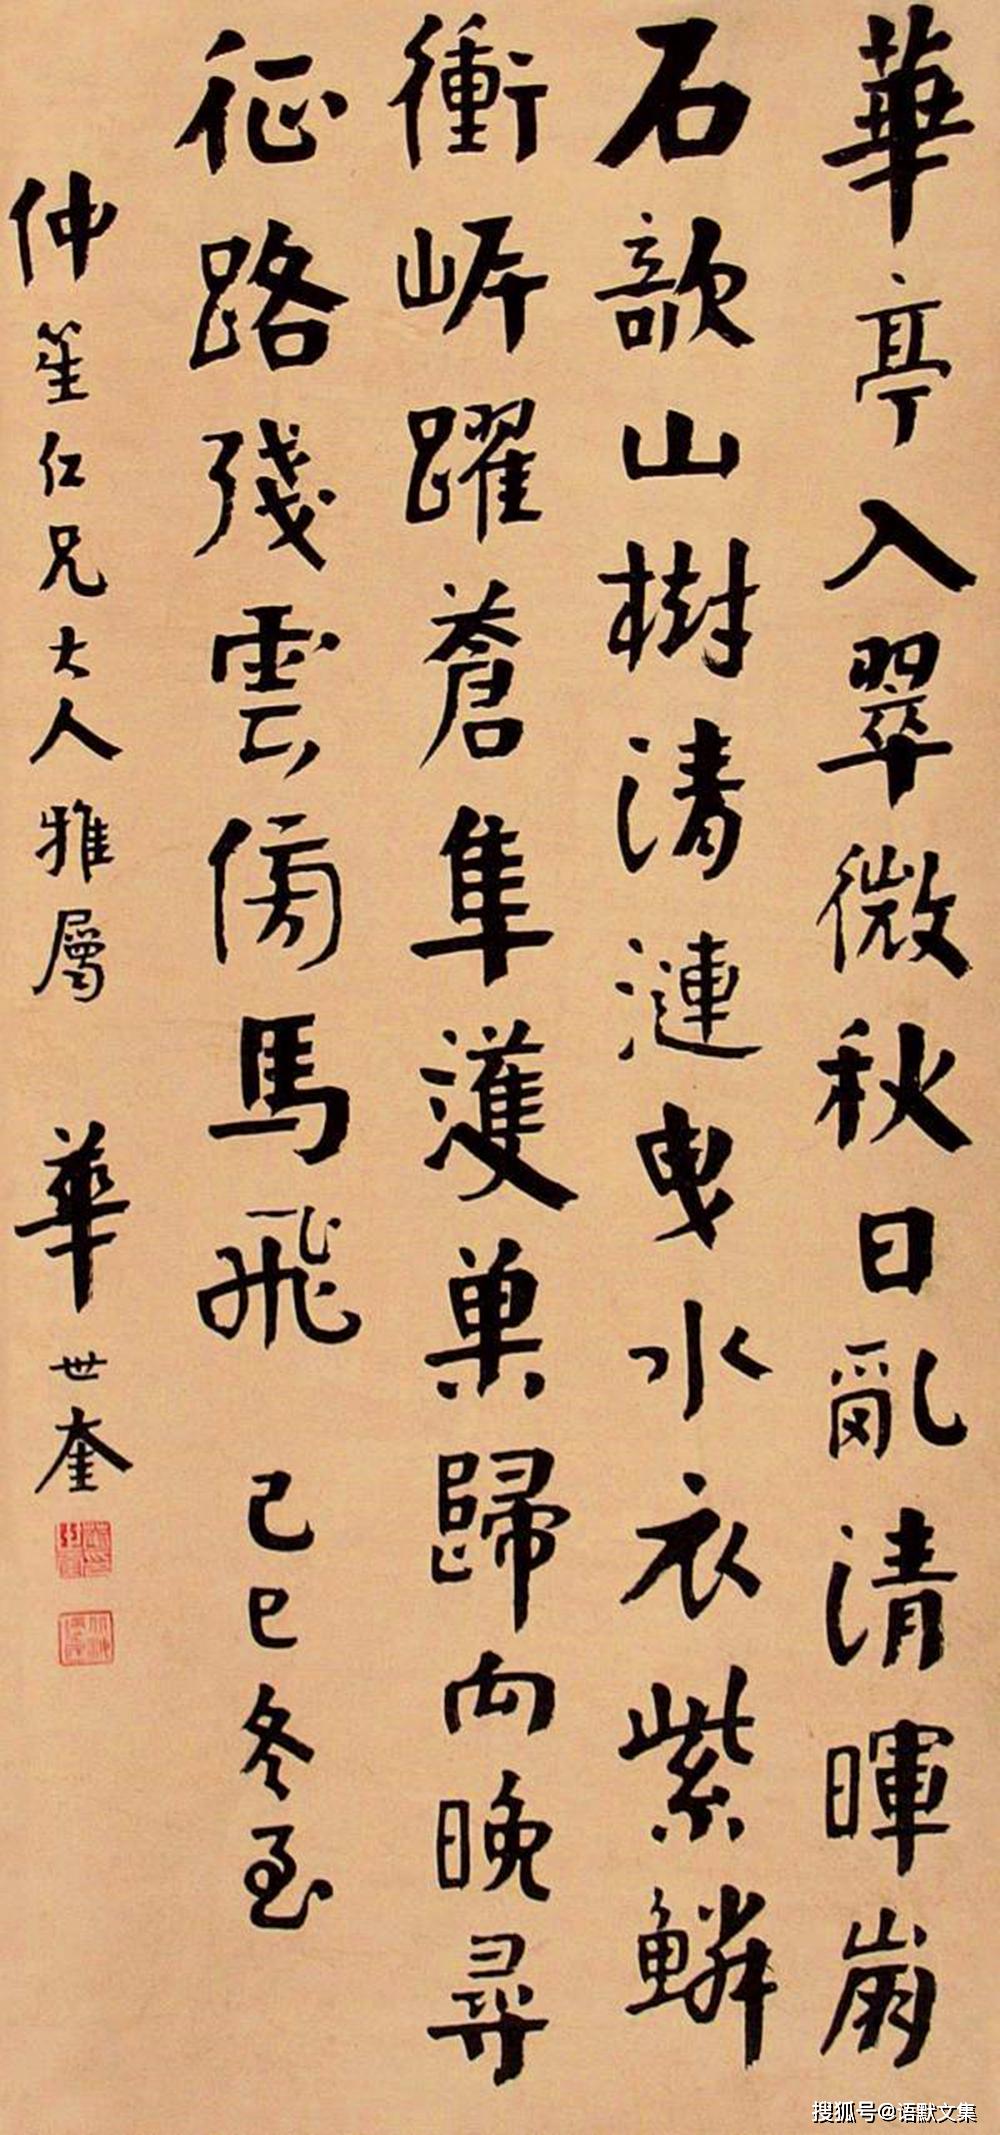 華亭入翠微秋日亂清暉崩
石欹山樹清漣曳水衣紫鱗
衝岸躍蒼隼護巢歸向晚尋
征路殘雲傍馬飛 己巳冬至
仲笙仁兄大人雅屬 華世奎
搜狐号@语默文集